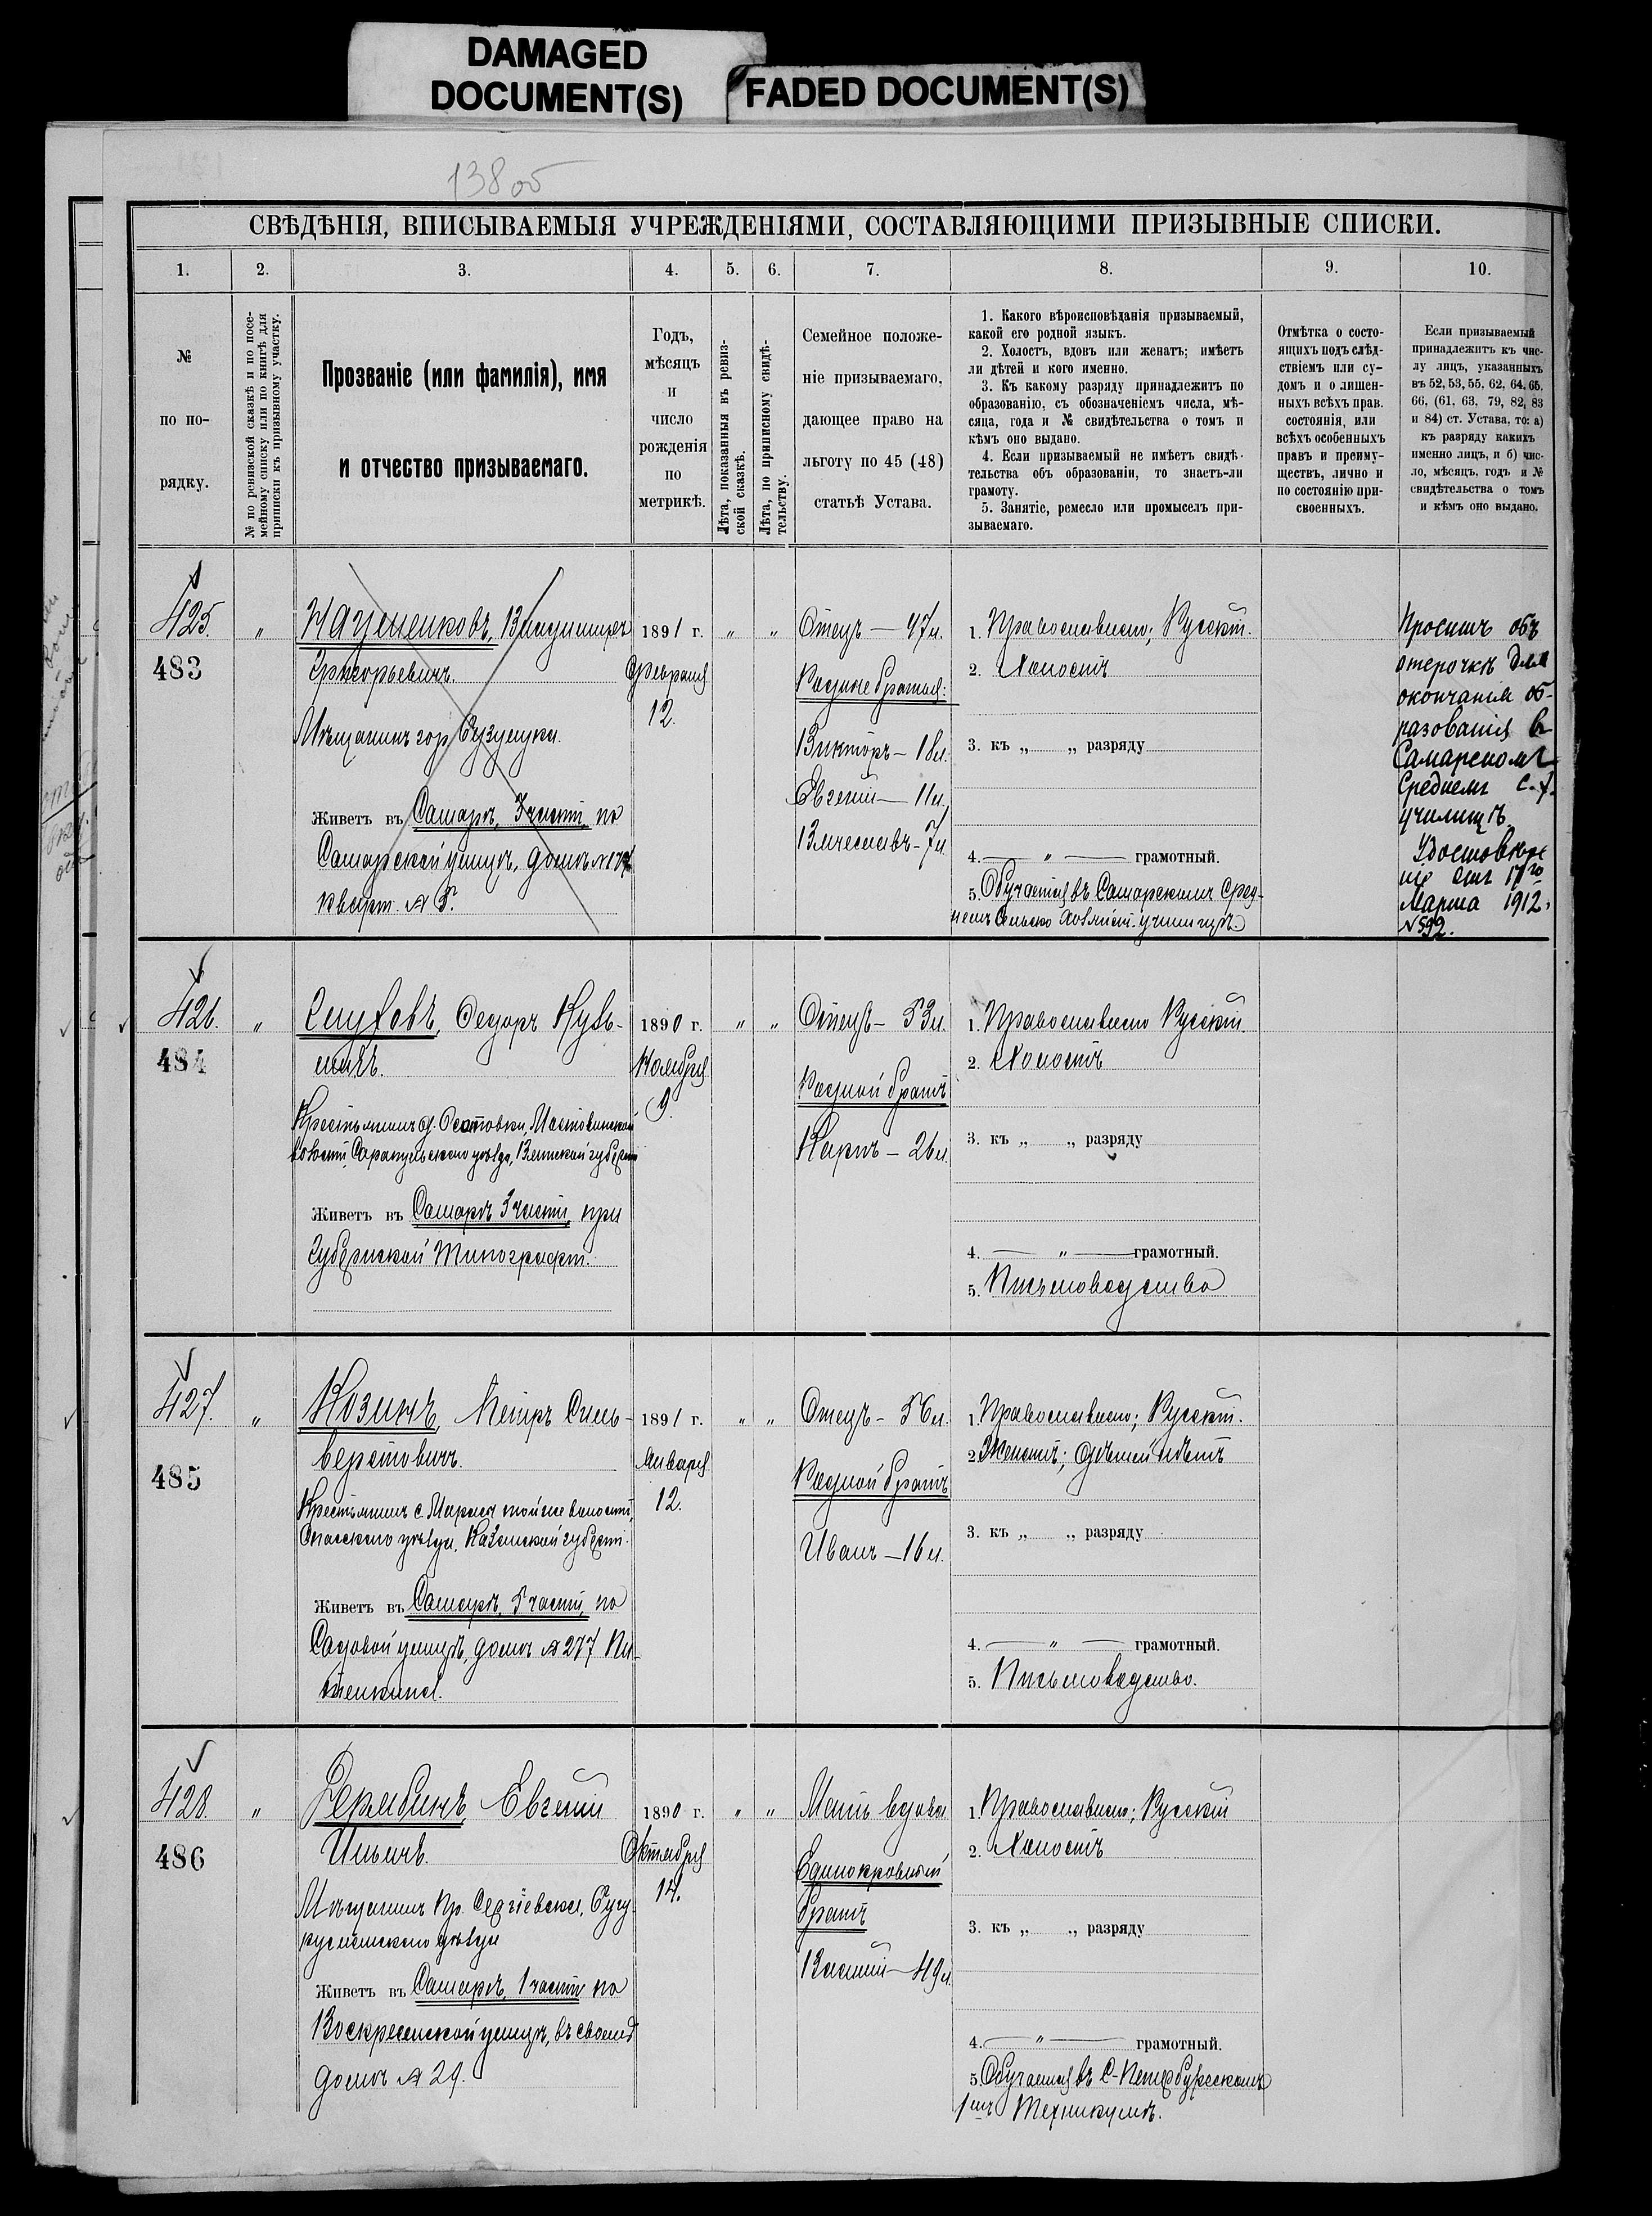 DAMAGED
DOCUMENT(S)
FADED DOCUMENT(S)
138 об
СВѢДѢНІЯ, ВПИСЫВАЕМЫЯ УЧРЕЖДЕНІЯМИ, СОСТАВЛЯЮЩИМИ ПРИЗЫВНЫЕ СПИСКИ.
1.
2.
3.
4.
5.
6.
7.
8.
9.
10.
№
по по-
рядку.
№ по ревизской сказкѣ и по посе-
мейному списку или по книгѣ для
приписки къ призывному участку.
Прозваніе (или фамилія), имя
и отчество призываемаго.
Годъ,
мѣсяцъ
и
число
рожденія
по
метрикѣ.
Лѣта, показанныя въ ревиз-
ской сказкѣ.
Лѣта, по приписному свидѣ-
тельству.
Семейное положе-
ніе призываемаго,
дающее право на
льготу по 45 (48)
статьѣ Устава.
1. Какого вѣроисповѣданія призываемый,
какой его родной языкъ.
2. Холостъ, вдовъ или женатъ; имѣетъ
ли дѣтей и кого именно.
3. Къ какому разряду принадлежитъ по
образованію, съ обозначеніемъ числа, мѣ-
сяца, года и № свидѣтельства о томъ и
кѣмъ оно выдано.
4. Если призываемый не имѣетъ свидѣ-
тельства объ образованіи, то знаетъ-ли
грамоту.
5. Занятіе, ремесло или промыселъ при-
зываемаго.
Отмѣтка о состо-
ящихъ подъ слѣд-
ствіемъ или су-
домъ и о лишен-
ныхъ всѣхъ прав.
состоянія, или
всѣхъ особенныхъ
правъ и преиму-
ществъ, лично и
по состоянію при-
своенныхъ.
Если призываемый
принадлежитъ къ чис-
лу лицъ, указанныхъ
въ 52, 53, 55, 62, 64, 65,
66, (61, 63, 79, 82, 83
и 84) ст. Устава, то: а)
къ разряду какихъ
именно лицъ, и б) чис-
ло, мѣсяцъ, годъ и №
свидѣтельства о томъ
и кѣмъ оно выдано.
425.
483
"
Владимиръ
Григорьевичъ.
Мѣщанинъ гор. Бузулука.
Живетъ въ Самарѣ, 3 части, по
Самарской улицѣ, домъ №
кварт. № 5.
1891 г.
Февраля
12.
"
"
Отецъ — 47 л.
Родные братья:
Викторъ — 18 л.
Евгеній — 11 л.
Вячеславъ — 7 л.
1. Православнаго; Русскій.
2. Холостъ
3. къ „ „ разряду
4. — " — грамотный.
5. Обучается въ Самарскомъ Сред-
немъ Сельско Хозяйст. училищѣ.
Проситъ объ
отсрочкѣ для
окончанія об-
разованія въ
Самарскомъ
Среднемъ С. Х.
училищѣ.
Удостовѣре
ніе отъ 17го
Марта 1912.
№ 592.
426.
484
"
Глуховъ, Федоръ Кузь-
мичъ.
волости, Сарапульскаго уѣзда, Вятской губерніи
Живетъ въ Самарѣ 3 части, при
Губернской Типографіи.
1890 г.
Ноября
9.
"
"
Отецъ — 53 л.
Родной братъ
Карпъ — 26 л.
1. Православнаго Русскій.
2. Холостъ
3. къ „ „ разряду
4. — " — грамотный.
5. Письмоводство
427.
485
"
Козинъ, Петръ Силь-
верстовичъ.
Крестьянинъ с. той же волости,
Спасскаго уѣзда, Казанской губерніи.
Живетъ въ Самарѣ, 5 части, по
Садовой улицѣ, домъ № 277
1891 г.
Января
12.
"
"
Отецъ — 56 л.
Родной братъ
Иванъ — 16 л.
1. Православнаго; Русскій.
2. Женатъ; дѣтей нѣтъ
3. къ „ „ разряду
4. — " — грамотный.
5. Письмоводство.
428.
486
"
Дерябинъ, Евгеній
Ильичъ.
Мѣщанинъ пр. Сергіевска, Бугу-
русланскаго уѣзда
Живетъ въ Самарѣ, 1 части по
Воскресенской улицѣ, въ своемъ
домѣ № 29.
1890 г.
Октября
14.
"
"
Мать вдова
Единокровный
братъ
Василій — 49 л.
1. Православнаго; Русскій
2. Холостъ
3. къ „ „ разряду
4. — " — грамотный.
5. Обучается въ С-Петербургскомъ
1мъ Техникумѣ.